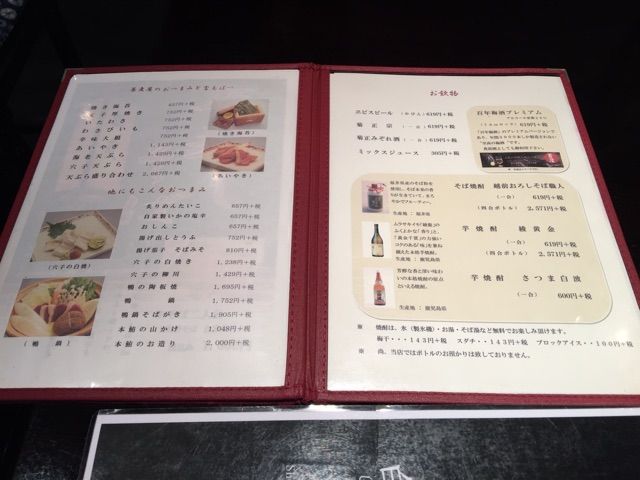 蕎麦屋のおつまみと言えば…
焼き海苔 657円+税
穴子厚焼き 752円+税
いたわさ 752円+税
わさびいも 752円+税
辛味大根 752円+税
あいやき 1,143円+税
海老天ぷら 1,429円+税
穴子天ぷら 1,429円+税
天ぷら盛り合わせ 2,067円+税
(焼き海苔)
(あいやき)
他にもこんなおつまみ
炙りめんたいこ 657円+税
自家製いかの塩辛 657円+税
おしんこ 657円+税
揚げ出しとうふ 752円+税
揚げ茄子 そばみそ 810円+税
穴子の白焼き 1,238円+税
穴子の柳川 1,429円+税
鴨の陶板焼 1,695円+税
鴨鍋 1,752円+税
鴨鍋そばがき 1,905円+税
本鮪の山かけ 1,048円+税
本鮪のお造り 2,000円+税
(穴子の白焼)
(鴨鍋)
お飲物
ヱビスビール (中びん) 619円+税
菊正宗 (一合) 619円+税
菊正みぞれ酒 (一合) 619円+税
ミックスジュース 305円+税
百年梅酒プレミアム
そば焼酎 越前おろしそば職人
(一合) 619円+税
(四合ボトル) 2,571円+税
生産地 : 福井県
芋焼酎 綾黄金
(一合) 619円+税
(四合ボトル) 2,571円+税
ムラサキイモ「綾紫」の
ふくよかな「香り」と、
「黄金千貫」の力強い
コクのある「味」を兼ね
備えた本格芋焼酎。
生産地 : 鹿児島県
芋焼酎 さつま白波
(一合) 600円+税
芳醇な香と深い味わ
いの本格焼酎の原点
といえる焼酎。
生産地 : 鹿児島県
※ 焼酎は、水(製氷機)・お湯・そば湯など無料でお楽しみ頂けます。
梅干・・・143円+税 スダチ・・143円+税 ブロックアイス・・190円+税
※ 尚、当店ではボトルのお預かりは致しておりません。